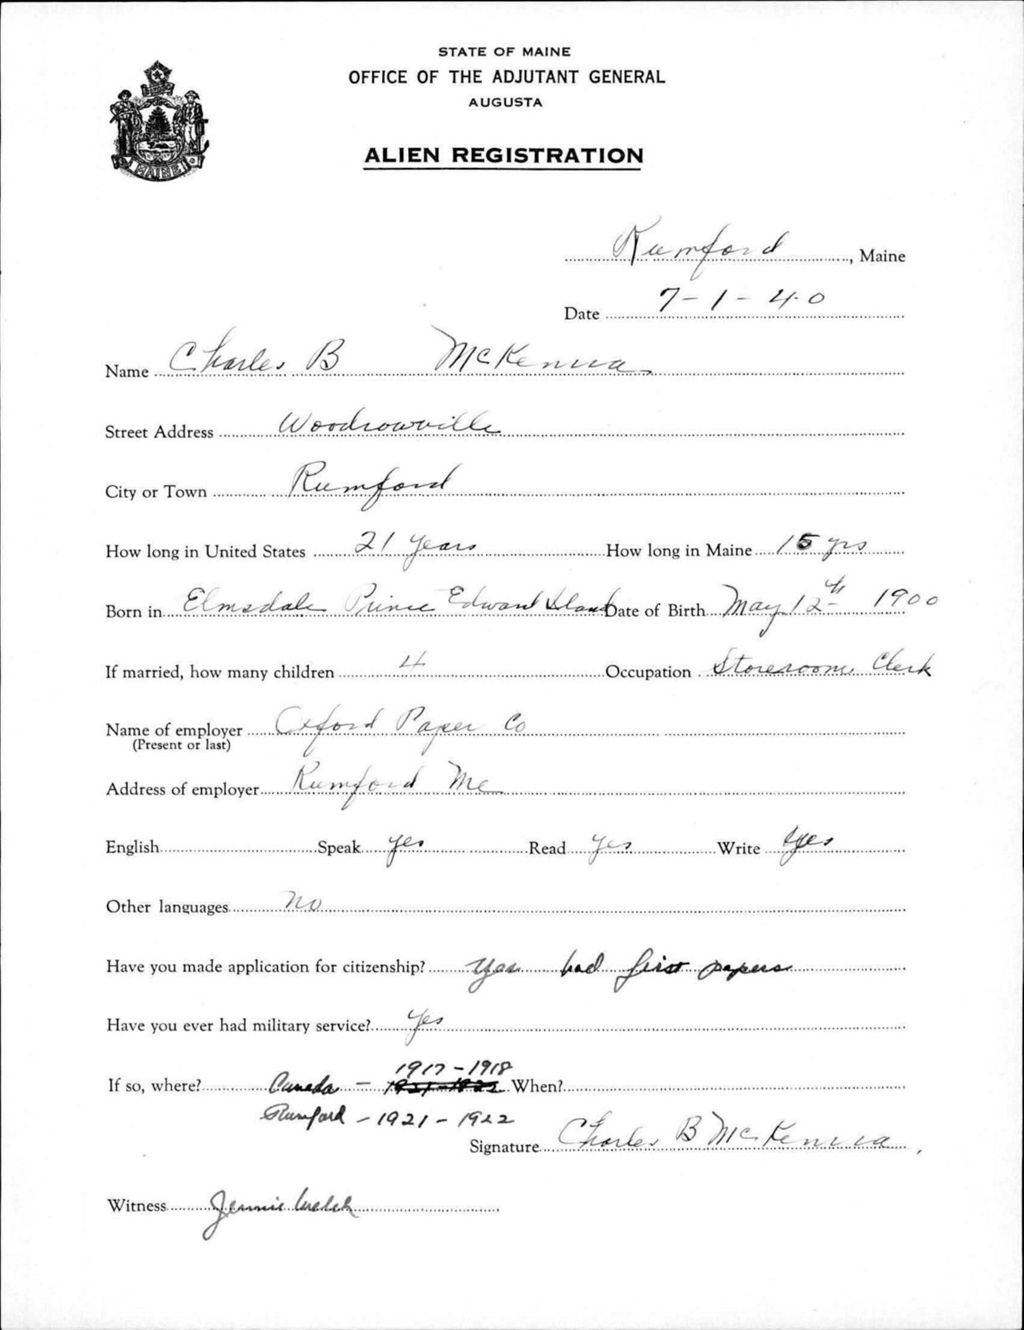 STATE OF MAINE
OFFICE OF THE ADJUTANT GENERAL
AUGUSTA
ALIEN REGISTRATION
MAINE
Rumford, Maine
Date 7-1-40
Name Charles B McKenna
Street Address Woodrowville
City or Town Rumford
How long in United States 21 years How long in Maine 15 yrs
Born in Elmsdale Prince Edward Island Date of Birth May 12th 1900
If married, how many children 4 Occupation Storeroom Clerk
Name of employer Oxford Paper Co
(Present or last)
Address of employer Rumford Me
English Speak yes Read yes Write yes
Other languages no
Have you made application for citizenship? yes had first papers
Have you ever had military service? yes
1917-1918
If so, where? Canada - 1921-1922 When?
Rumford - 1921-1922
Signature Charles B McKenna
Witness Jennie Welch